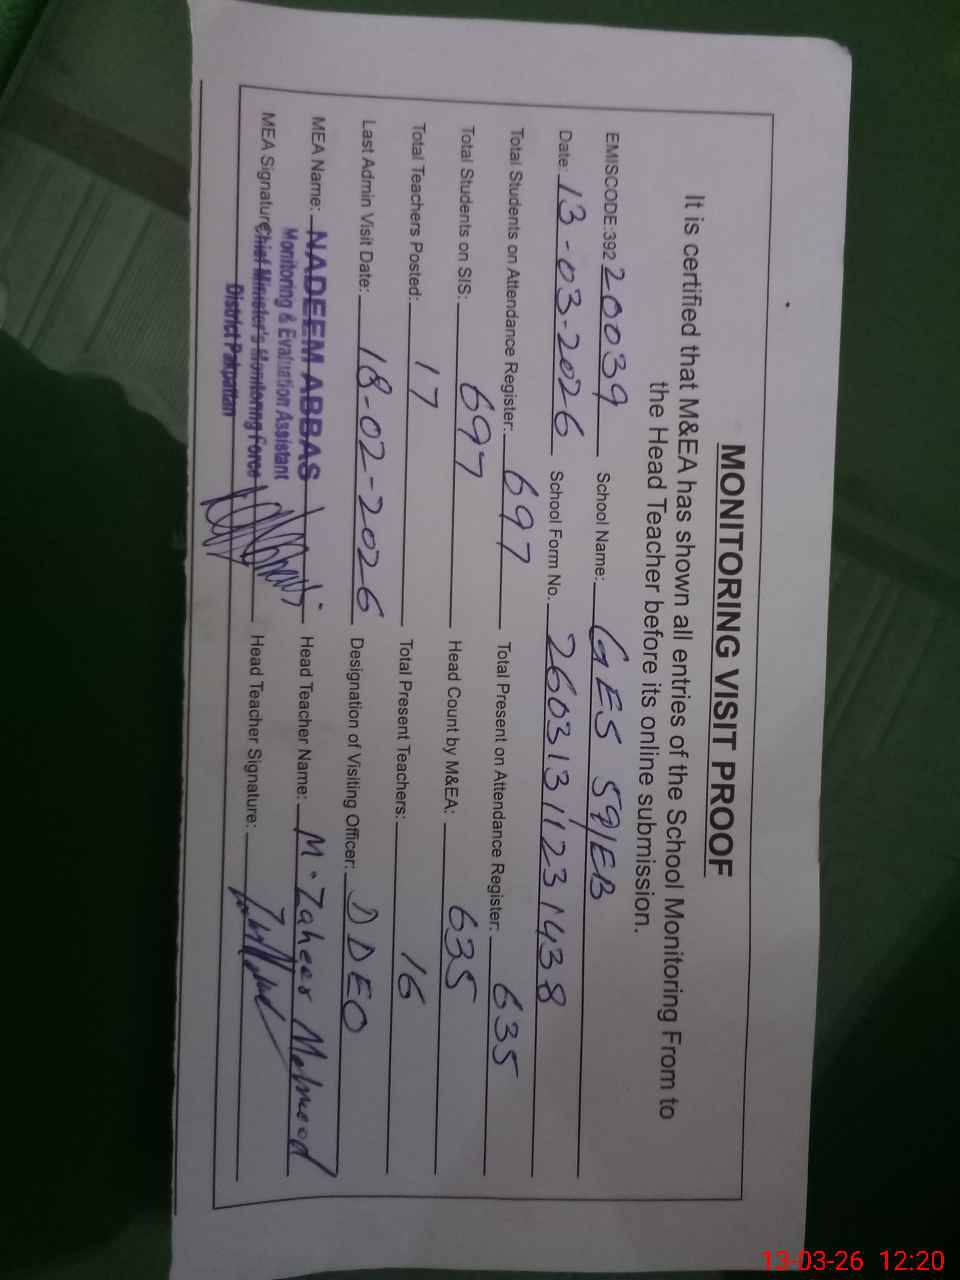 MONITORING VISIT PROOF
It is certified that M&EA has shown all entries of the School Monitoring From to
the Head Teacher before its online submission.
EMISCODE:392 20039 School Name: GES 59/EB
Date: 13-03-2026 School Form No. 26031311231438
Total Students on Attendance Register: 697 Total Present on Attendance Register: 635
Total Students on SIS: 697 Head Count by M&EA: 635
Total Teachers Posted: 17 Total Present Teachers: 16
Last Admin Visit Date: 18-02-2026 Designation of Visiting Officer: DDEO
MEA Name: NADEEM ABBAS Head Teacher Name: M. Zaheer Mahmood
Monitoring & Evaluation Assistant
MEA Signature Chief Minister's Monitoring Force Head Teacher Signature:
District Pakpattan
13-03-26 12:20